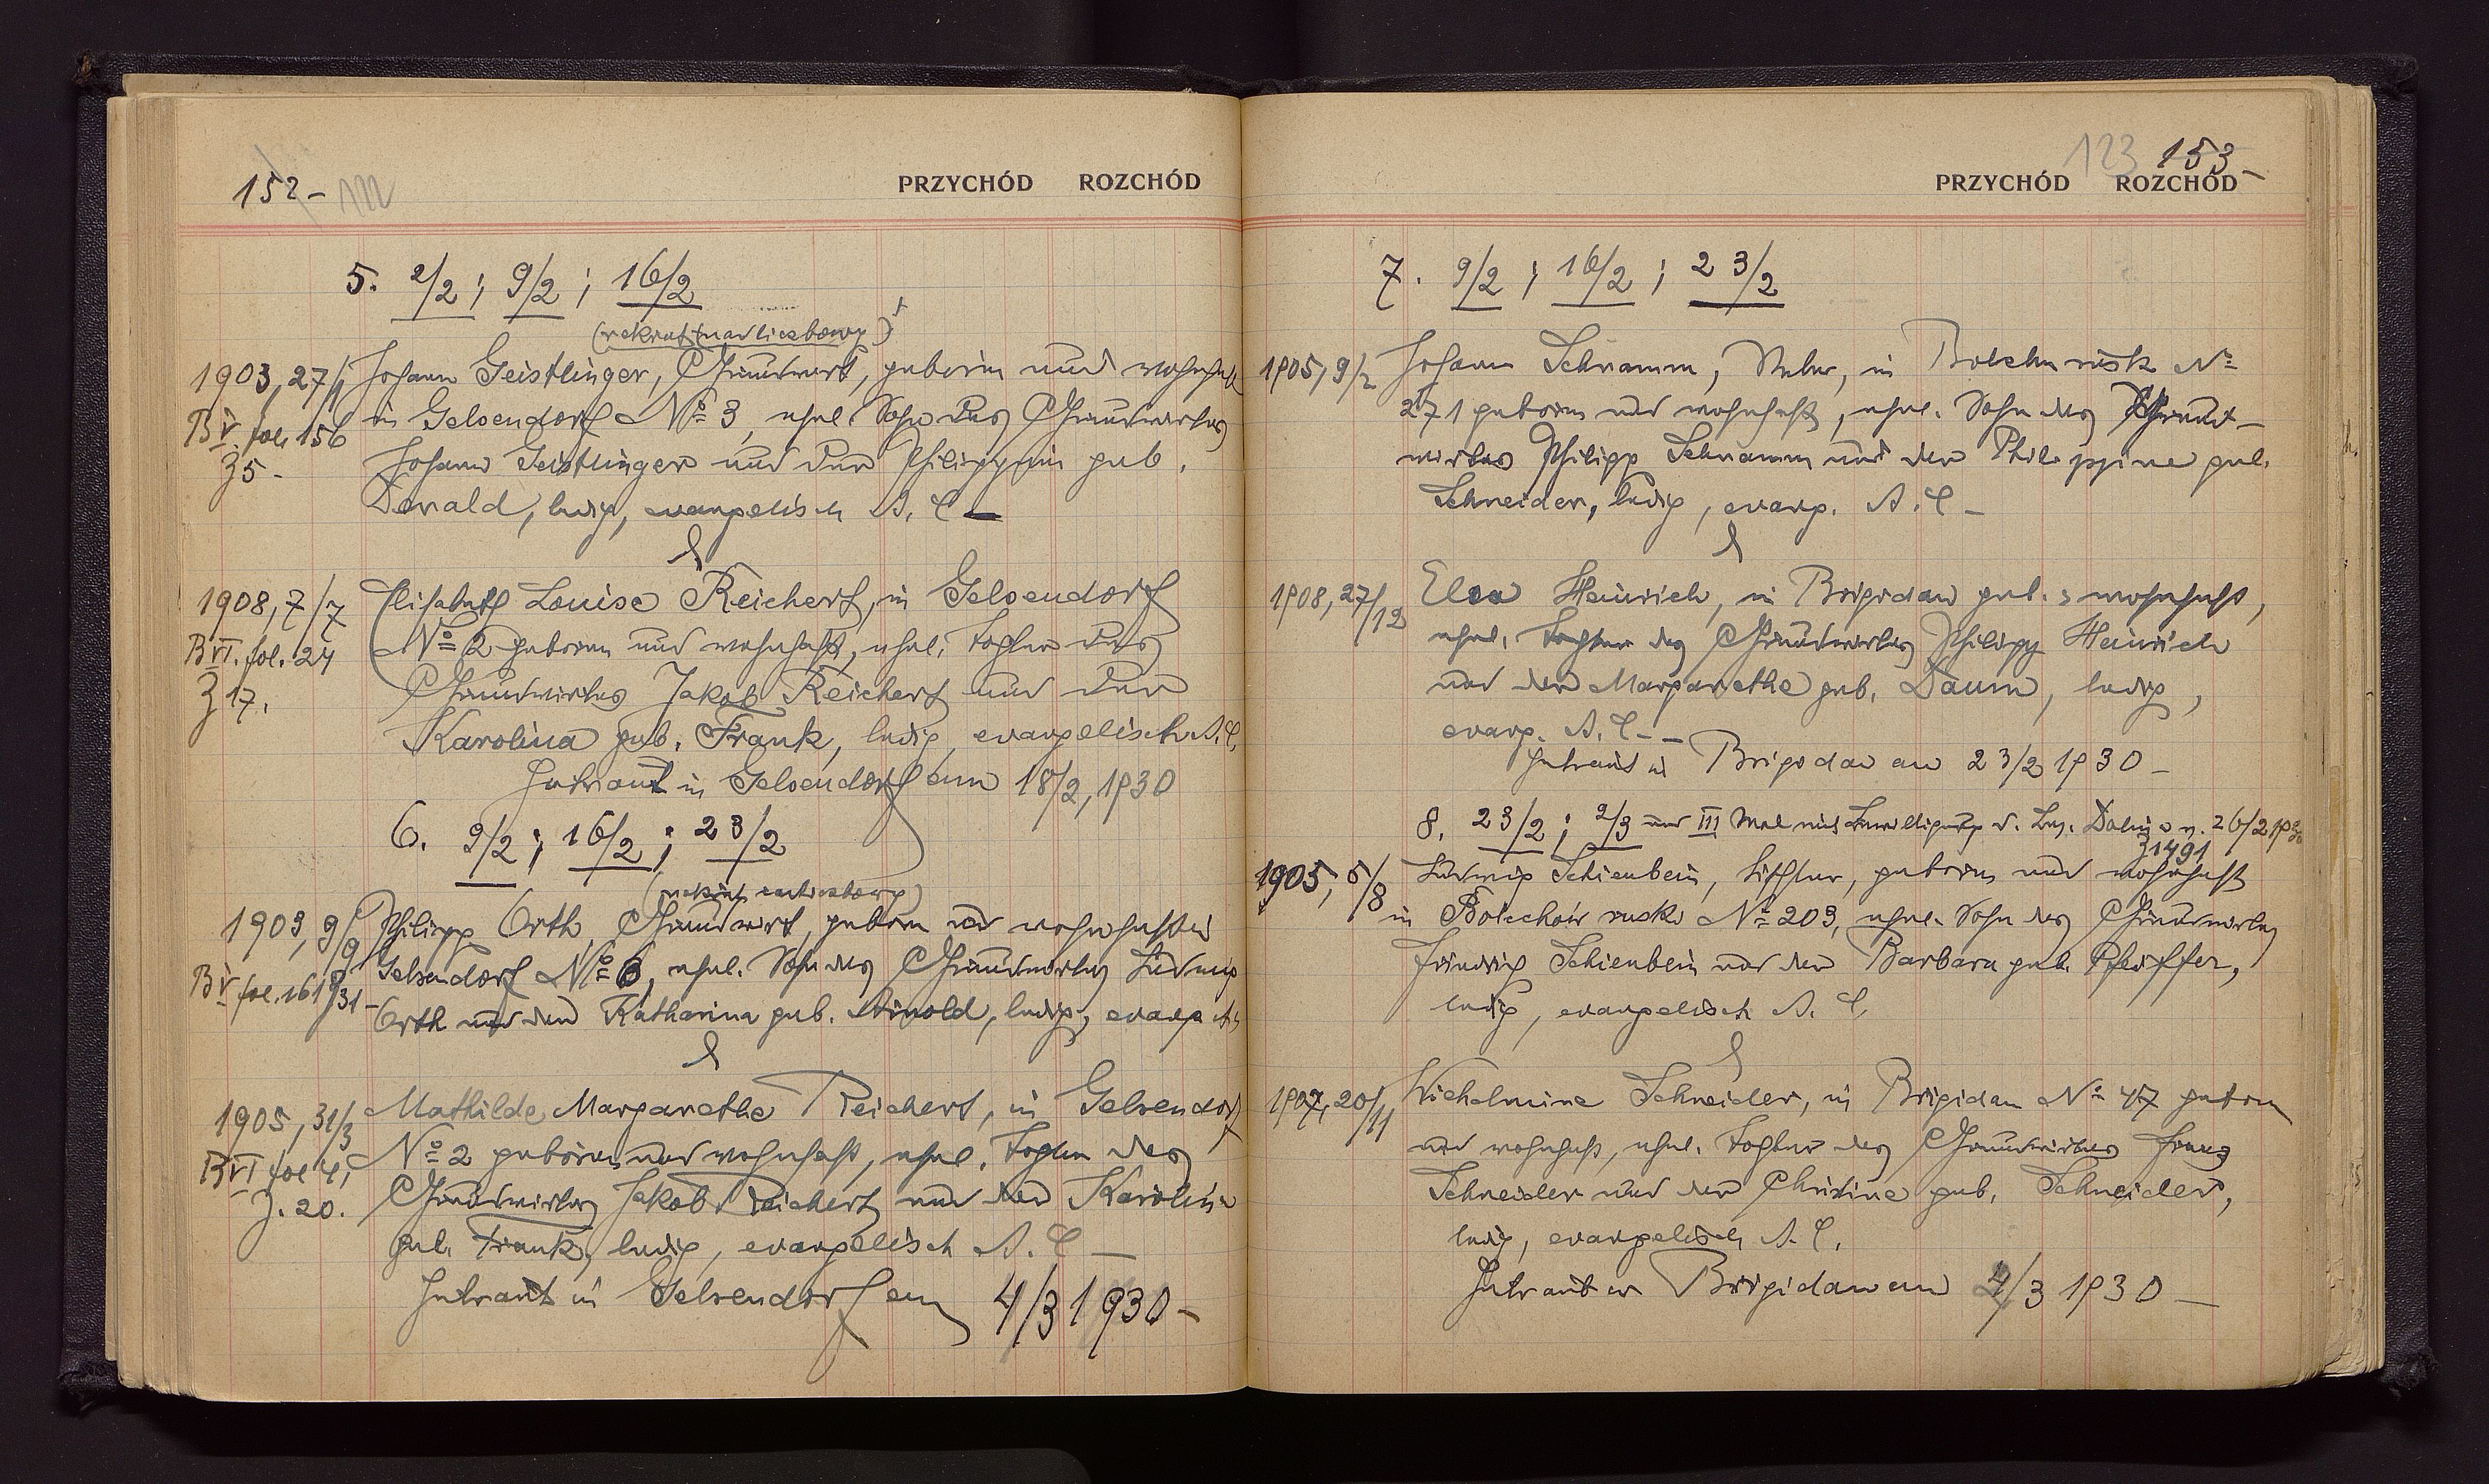 152-
PRZYCHÓD ROZCHÓD
5. 2/2 ; 9/2 ; 16/2
(rekrut nadliczbowy)
1903, 27/1 Johann Geistlinger, Grundwirt, geboren und wohnhaft
B V. fol. 156 in Gelsendorf No 3, ehel. Sohn des Grundwirtes
Z 5- Johann Geistlinger und der Philippine geb.
Dewald, ledig, evangelisch A. C. -
&
1908, 7/7 Elisabeth Louise Reichert, in Gelsendorf
B VI. fol. 24 No 2 geboren und wohnhaft, ehel. Tochter des
Z 17. Grundwirtes Jakob Reichert und der
Karolina geb. Frank, ledig, evangelisch A.C.
Getraut in Gelsendorf am 18/2, 1930
6. 9/2 ; 16/2 ; 23/2
(rekrut nadliczbowy)
1903, 9/9 Philipp Orth, Grundwirt, geboren und wohnhaft in
B V fol. 161 Z 31- Gelsendorf No 6, ehel. Sohn des Grundwirtes Ludwig
Orth und der Katharina geb. Arnold, ledig, evang A.
&
1905, 31/3 Mathilde Margarethe Reichert, in Gelsendorf
B VI fol 4, No 2 geboren und wohnhaft, ehel. Tochter des
Z. 20. Grundwirtes Jakob Reichert und der Karoline
geb. Frank, ledig, evangelisch A. C -
Getraut in Gelsendorf am 4/3 1930-
123 153-
PRZYCHÓD ROZCHÓD
7. 9/2 ; 16/2 ; 23/2
1905, 9/2 Johann Schramm, in No
271 geboren und wohnhaft, ehel. Sohn des Grund-
wirtes Philipp Schramm und der Philippine geb.
Schneider, ledig, evang. A. C -
&
1908, 27/12 Elsa Heinrich, in Brigidau geb. & wohnhaft,
ehel. Tochter des Grundwirtes Philipp Heinrich
und der Margarethe geb. Daum, ledig,
evang. A. C - -
Getraut in Brigidau am 23/2 1930 -
8. 23/2 ; 2/3 und III Mal mit Bewilligung d. Bez. Dolina v. 26/2 1930
Z 1491
1905, 5/8 Ludwig Schienbein, Tischler, geboren und wohnhaft
in Bolechów ruski No 203, ehel. Sohn des Grundwirtes
Friedrich Schienbein und der Barbara geb. Pfeiffer,
ledig, evangelisch A. C.
&
1907, 20/11 Wilhelmine Schneider, in Brigidau No 47 geboren
und wohnhaft, ehel. Tochter des Grundwirtes Franz
Schneider und der Christine geb. Schneider,
ledig, evangelisch A. C.
Getraut in Brigidau am 4/3 1930 -